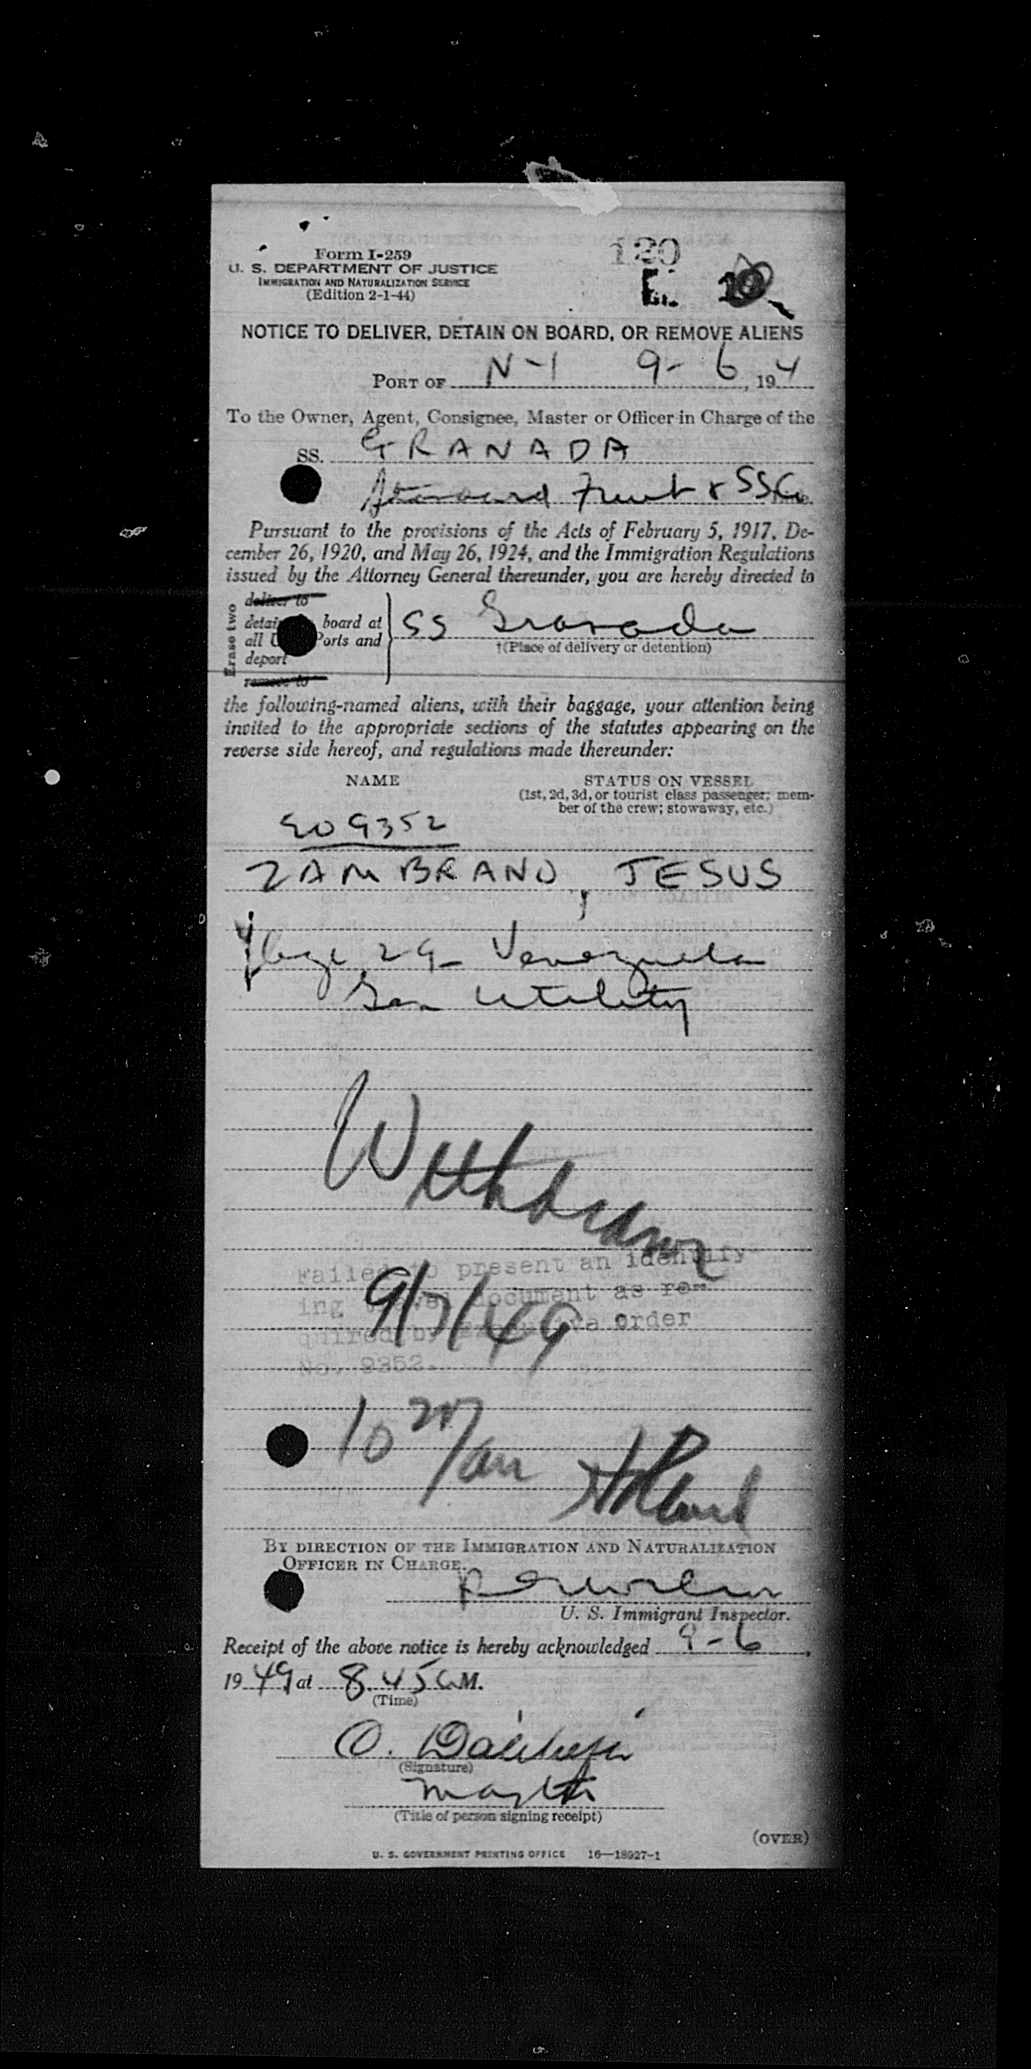 Form I-259
U. S. DEPARTMENT OF JUSTICE
IMMIGRATION AND NATURALIZATION SERVICE
(Edition 2-1-44)
120
NOTICE TO DELIVER, DETAIN ON BOARD, OR REMOVE ALIENS
PORT OF N-1 9-6, 194
To the Owner, Agent, Consignee, Master or Officer in Charge of the
SS. GRANADA
Standard Fruit & SSCo
Pursuant to the provisions of the Acts of February 5, 1917, De-
cember 26, 1920, and May 26, 1924, and the Immigration Regulations
issued by the Attorney General thereunder, you are hereby directed to
Erase two
deliver to
detain board at
all U Ports and
deport
remove to
SS Granada
†(Place of delivery or detention)
the following-named aliens, with their baggage, your attention being
invited to the appropriate sections of the statutes appearing on the
reverse side hereof, and regulations made thereunder:
NAME STATUS ON VESSEL
(1st, 2d, 3d, or tourist class passenger; mem-
ber of the crew; stowaway, etc.)
909352
ZAMBRANO, JESUS
age 29 - Venezuela
Utility
Withdrawn
Failed to present an identify
ing travel document as re-
quired by Executive order
NO. 9352.
9/7/49
10 20/am
BY DIRECTION OF THE IMMIGRATION AND NATURALIZATION
OFFICER IN CHARGE.
U. S. Immigrant Inspector.
Receipt of the above notice is hereby acknowledged 9-6,
1949 at 8 45 a M.
(Time)
O.
(Signature)
Master
(Title of person signing receipt)
(OVER)
U. S. GOVERNMENT PRINTING OFFICE 16—18927-1